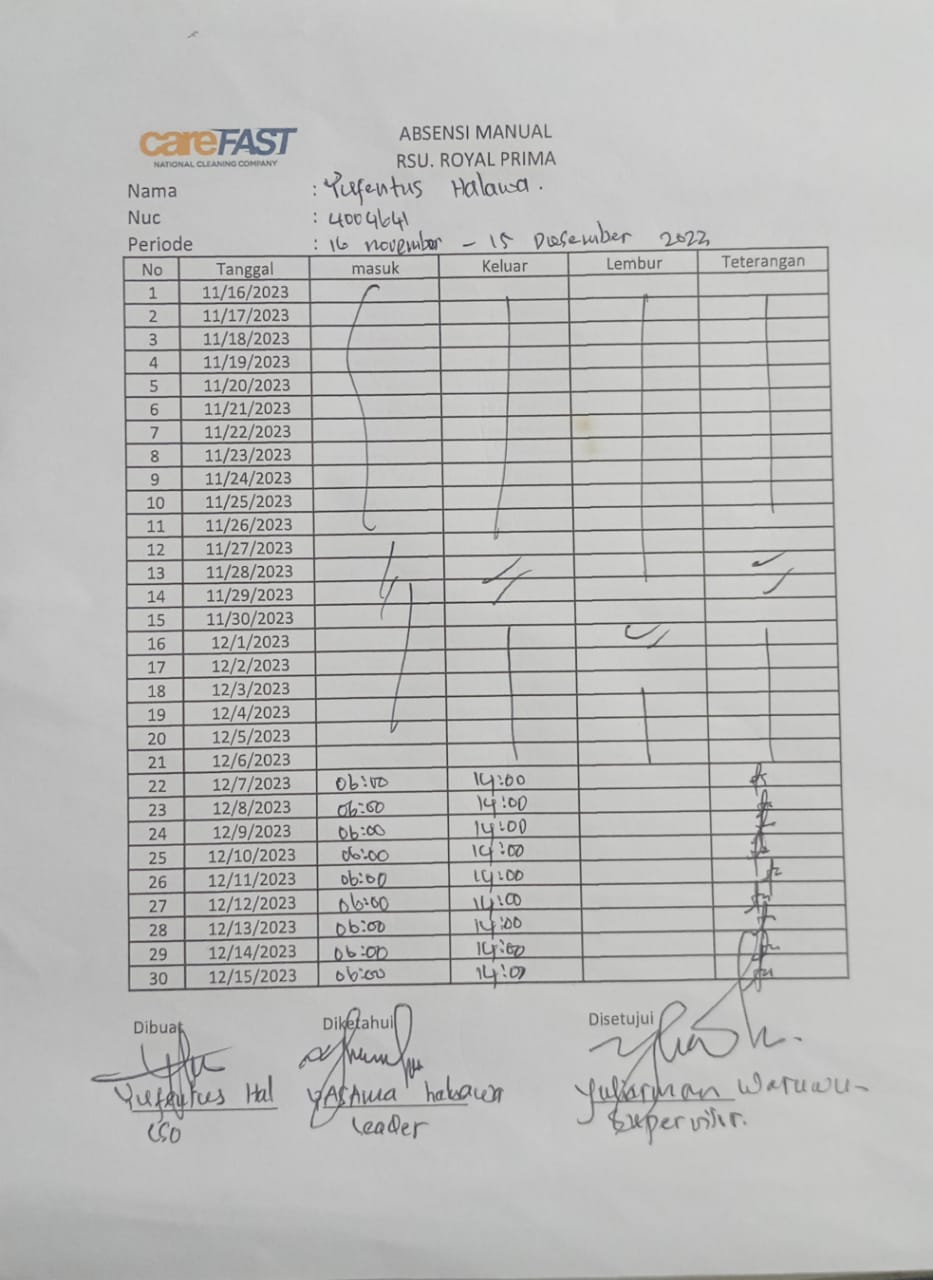 careFAST
NATIONAL CLEANING COMPANY
ABSENSI MANUAL
RSU. ROYAL PRIMA
Nama : Yufentus Halawa.
Nuc : 4004641
Periode : 16 november - 15 Desember 2023
No Tanggal masuk Keluar Lembur Teterangan
1 11/16/2023
2 11/17/2023
3 11/18/2023
4 11/19/2023
5 11/20/2023
6 11/21/2023
7 11/22/2023
8 11/23/2023
9 11/24/2023
10 11/25/2023
11 11/26/2023
12 11/27/2023
13 11/28/2023
14 11/29/2023
15 11/30/2023
16 12/1/2023
17 12/2/2023
18 12/3/2023
19 12/4/2023
20 12/5/2023
21 12/6/2023
22 12/7/2023 06:00 14:00
23 12/8/2023 06:00 14:00
24 12/9/2023 06:00 14:00
25 12/10/2023 06:00 14:00
26 12/11/2023 06:00 14:00
27 12/12/2023 06:00 14:00
28 12/13/2023 06:00 14:00
29 12/14/2023 06:00 14:00
30 12/15/2023 06:00 14:00
Dibuat Diketahui Disetujui
Yufentus Hal YASAWA halawa Yuliarman Waruwu
CSO Leader Supervisir.